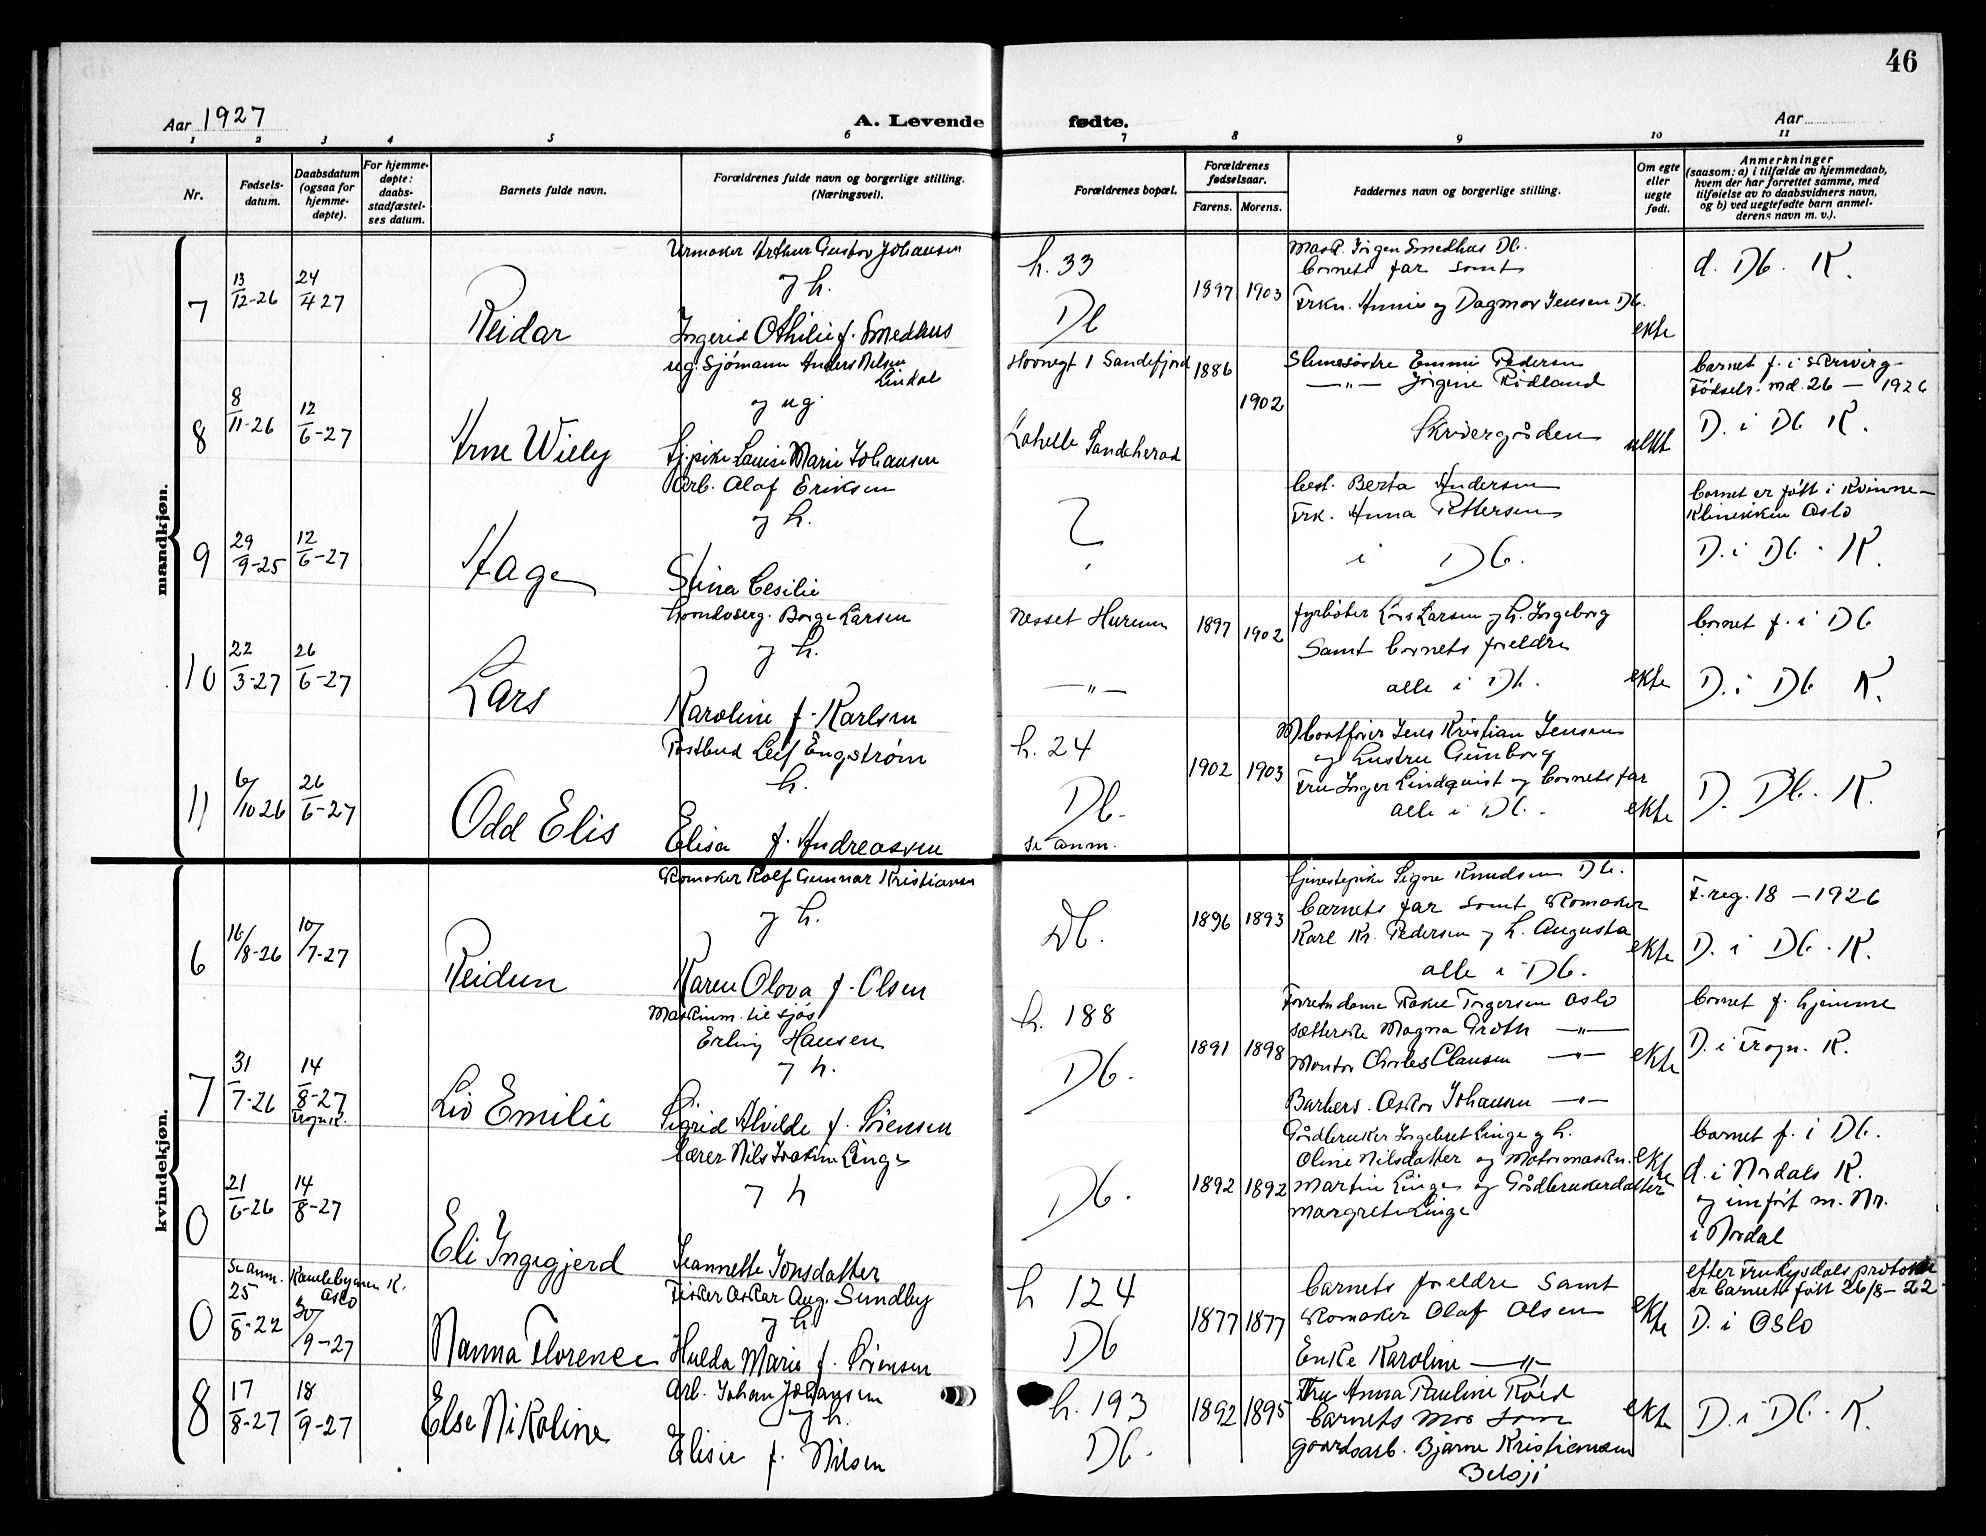 46
Aar 1927
A. Levende fødte.
Aar
1 2 3 4 5 6 7 8 9 10 11
Nr.
Fødsels-datum.
Daabsdatum (ogsaa for hjemme-døpte).
For hjemme-døpte: daabs-stadfæstel-ses datum.
Barnets fulde navn.
Forældrenes fulde navn og borgerlige stilling. (Næringsvei).
Forældrenes bopæl.
Forældrenes fødselsaar.
Farens. Morens.
Faddernes navn og borgerlige stilling.
Om egte eller uegte født.
Anmerkninger (saasom: a) i tilfælde av hjemmedaab, hvem der har forrettet samme, med tilføielse av to daabsvidners navn, og b) ved uegtefødte barn anmel-derens navn m. v.).
mandkjøn.
7
13/12-26
24/4 27
Reidar
Urmaker Arthur Gustav Johansen
og h.
Ingerid Othilie f. Smedhus
h. 33
Db
1897 1903
Mask. Jørgen Smedhus Db.
barnets far samt
Frkn. Annie og Dagmar Jensen Db.
ekte
d. Db. K.
8
8/11-26
12/6-27
Arne Willy
ug. Sjømann Anders Nilsen
og ug.
tj.pike Louise Marie Johansen
Sandefjord
Sandeherad
1886
1902
Emmi Pedersen
—"— Jørgine Rødland
uekt
barnet f. i
Fødselr. md. 26 — 1926
D. i Db K.
9
29/9-25
12/6-27
Aage
Arb. Olaf Eriksen
og h.
Stina Cesilie
?
best. Berta Andersen
Frk. Anna Pettersen
i Db.
barnet er født i Kvinne-
klinikken Oslo
D. i Db. K.
10
22/3-27
26/6-27
Lars
Borge Larsen
og h.
Karoline f. Karlsen
Nesset Hurum
—"—
1897 1902
fyrbøter Lars Larsen og h. Ingeborg
Samt barnets foreldre
alle i Db.
ekte
barnet f. i Db
D. i Db K.
11
6/10 26
26/6-27
Odd Elis
Postbud Leif Engstrøm
h.
Elisa f. Andreassen
h. 24
Db.
1902 1903
Jens Kristian Jensen
og hustru Gunborg
Fru Inger Lindquist og barnets far
alle i Db.
ekte
D. Db. K.
kvindekjøn.
6
16/8-26
10/7-27
Reidun
Skomaker Rolf Gunnar Kristiansen
og h.
Karen Olava f. Olsen
se anm.
Db.
1896 1893
tjenestepike Signe Knudsen Db.
barnets far samt skomaker
Karl Kr. Pedersen og h. Augusta
alle i Db.
ekte
F. reg. 18 — 1926
D. i Db. K.
7
31/7-26
14/8-27
Frogn K.
Liv Emilie
Maskinm. til sjøs
Erling Hansen
og h.
Sigrid Alvilde f. Sørensen
h. 188
Db.
1891 1898
Torgersen Oslo
Sætterske Magna Groth —"—
Montør Charles Clausen —"—
Barbers. Oskar Johansen —"—
ekte
barnet f. hjemme
D. i Frogn. K.
0
21/6-26
14/8-27
Eli Ingegjerd
Lærer Nils Joakim Linge
og h
Jeannette Jonsdatter
Db.
1892 1892
Gårdbruker Ingebret Linge og h.
Oline Nilsdatter og Motormaskn.
Martin Linge og Gårdbrukerdatter
Margrete Linge
ekte
barnet f. i Db.
d. i Nordals K.
og innført m. Nr.
i Nordal
0
se anm.
25/8-22
Kampenbyens K. Oslo
30/9-27
Nanna Florence
Fisker Oskar Aug. Sundby
og h
Hulda Marie f. Sørensen
h 124
Db
1877 1877
barnets foreldre samt
skomaker Olaf Olsen
Enke Karoline —"—
ekte
efter protokol
er barnets født 26/8-22
D. i Oslo
8
17/8-27
18/9-27
Else Nikoline
Arb. Johan Johansen
og h.
Elisie f. Nilsen
h. 193
Db.
1892 1895
Fru Anna Pauline Røed
barnets mor samt
gaardsarb. Bjarne Kristiansen
ekte
D. i Db. K.